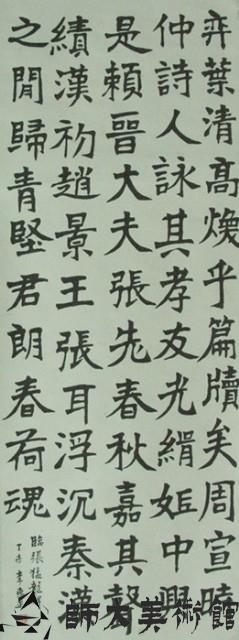 弈葉清高煥乎篇牘矣周宣時
仲詩人詠其孝友光緝姬中興
是賴晉大夫張先春秋嘉其聲
績漢初趙景王張耳浮沉秦漢
之閒歸青堅君朗春荷魂
臨張猛龍
師大美術館